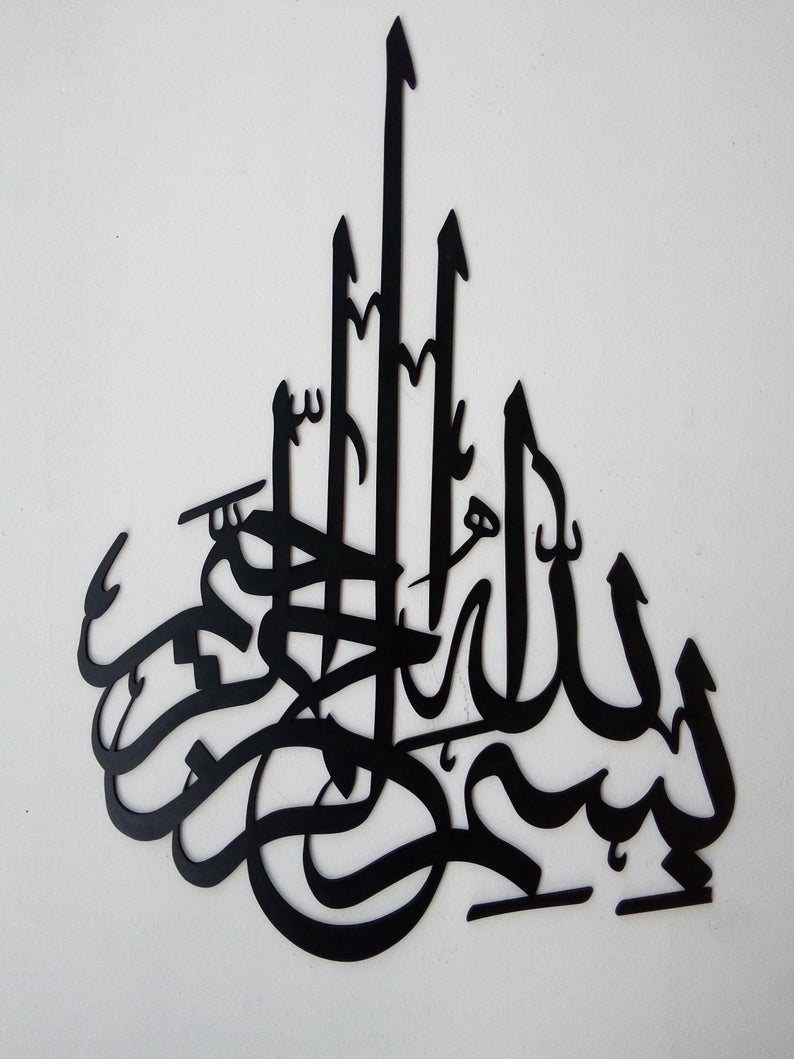 بِسْمِ اللّٰهُ الرَّحْمٰنِ الرَّحِيَّمِ